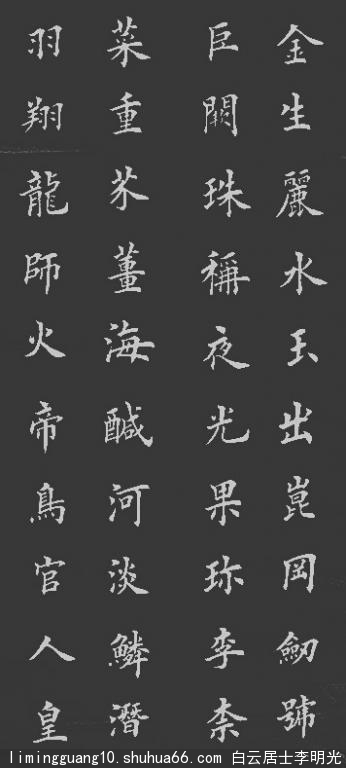 金生麗水玉出崑岡劒號
巨闕珠稱夜光果珎李柰
菜重芥薑海鹹河淡鱗潛
羽翔龍師火帝鳥官人皇
limingguang10.shuhua66.com 白云居士李明光